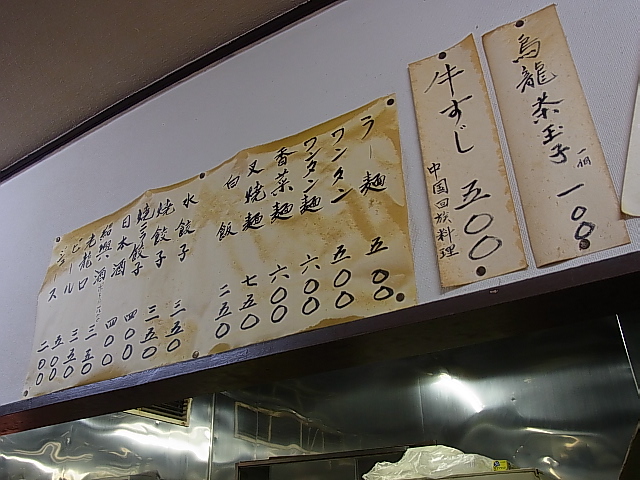 烏龍茶玉子 一個 一〇〇
牛すじ 五〇〇
中国回族料理
ラー麺 五〇〇
ワンタン 五〇〇
ワンタン麺 六〇〇
香菜麺 六〇〇
叉焼麺 七五〇
白飯 二五〇
水餃子 三五〇
焼餃子 三五〇
焼三餃子 四〇〇
日本酒 四〇〇
紹興酒 三五〇
老龍口 三五〇
ビール 五〇〇
ジュース 二〇〇